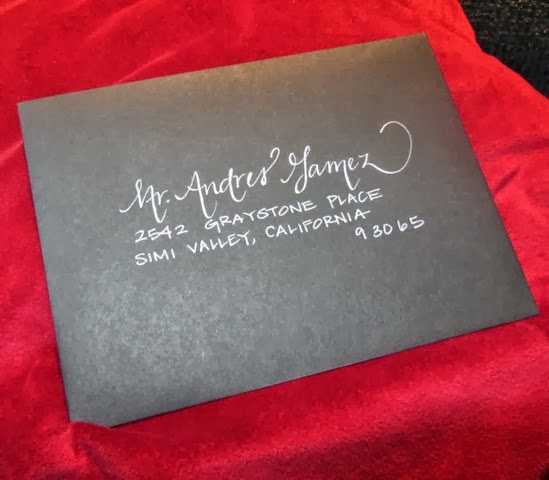 Mr. Andres Gamez
2542 GRAYSTONE PLACE
SIMI VALLEY, CALIFORNIA
93065